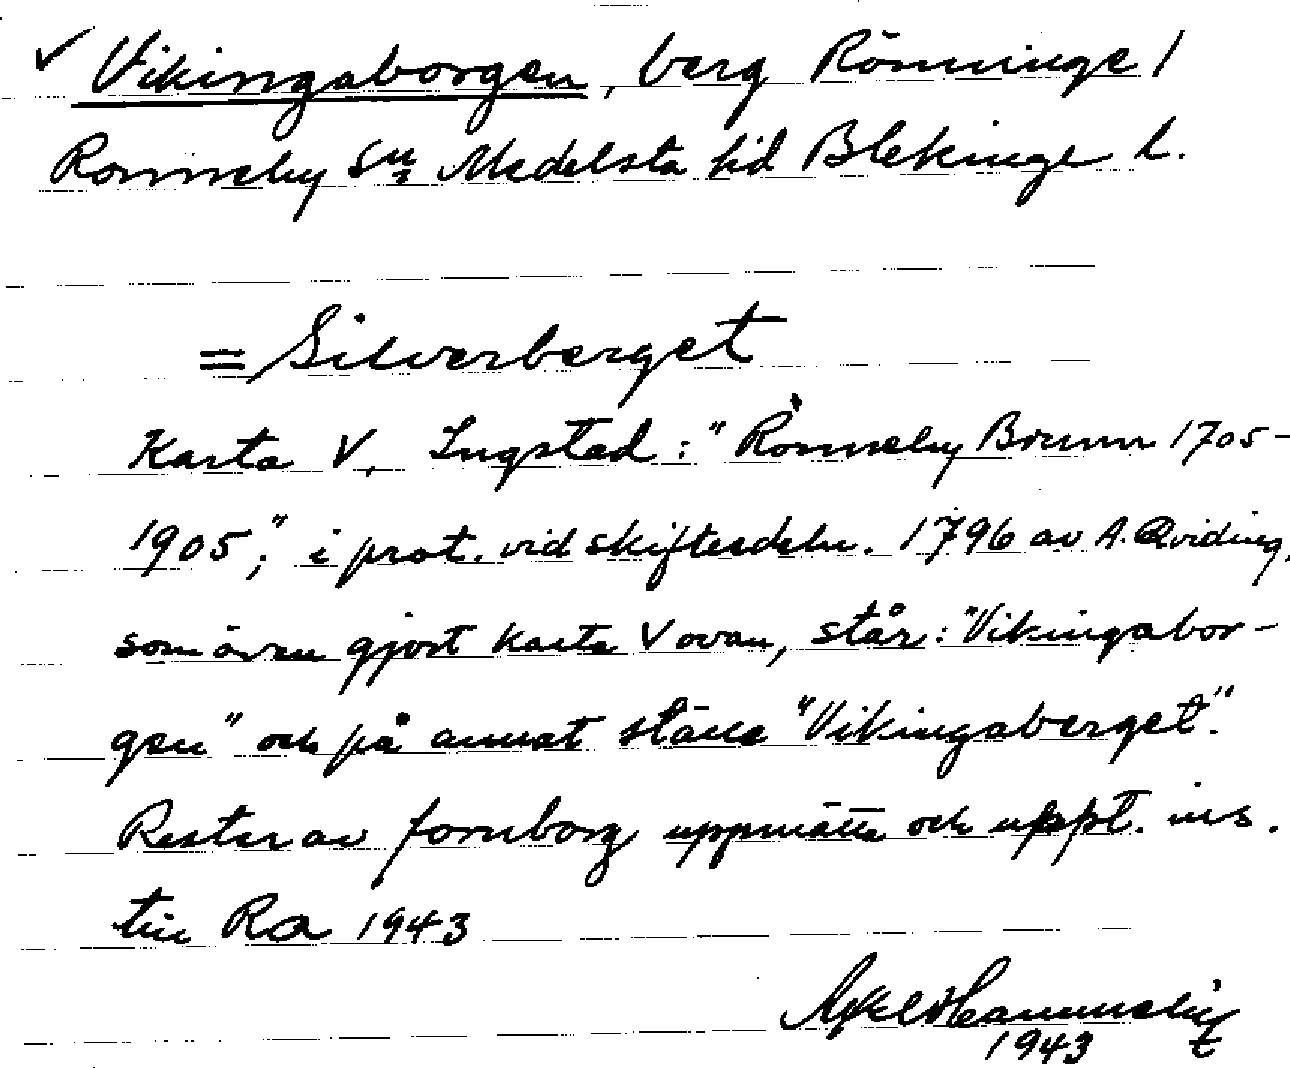 ✓ Vikingaborgen, berg Rönninge 1
Ronneby sn Medelsta hd Blekinge l.
= Silverberget
Karta V, Ingstad: "Ronneby Brunn 1705-
1905", i prot. vid skiftesdeln. 1796 av A. Qviding,
som även gjort karta V ovan, står: "Vikingabor-
gen" och på annat ställe "Vikingaberget".
Rester av fornborg uppmätta och uppt. ins.
till Ra 1943
1943